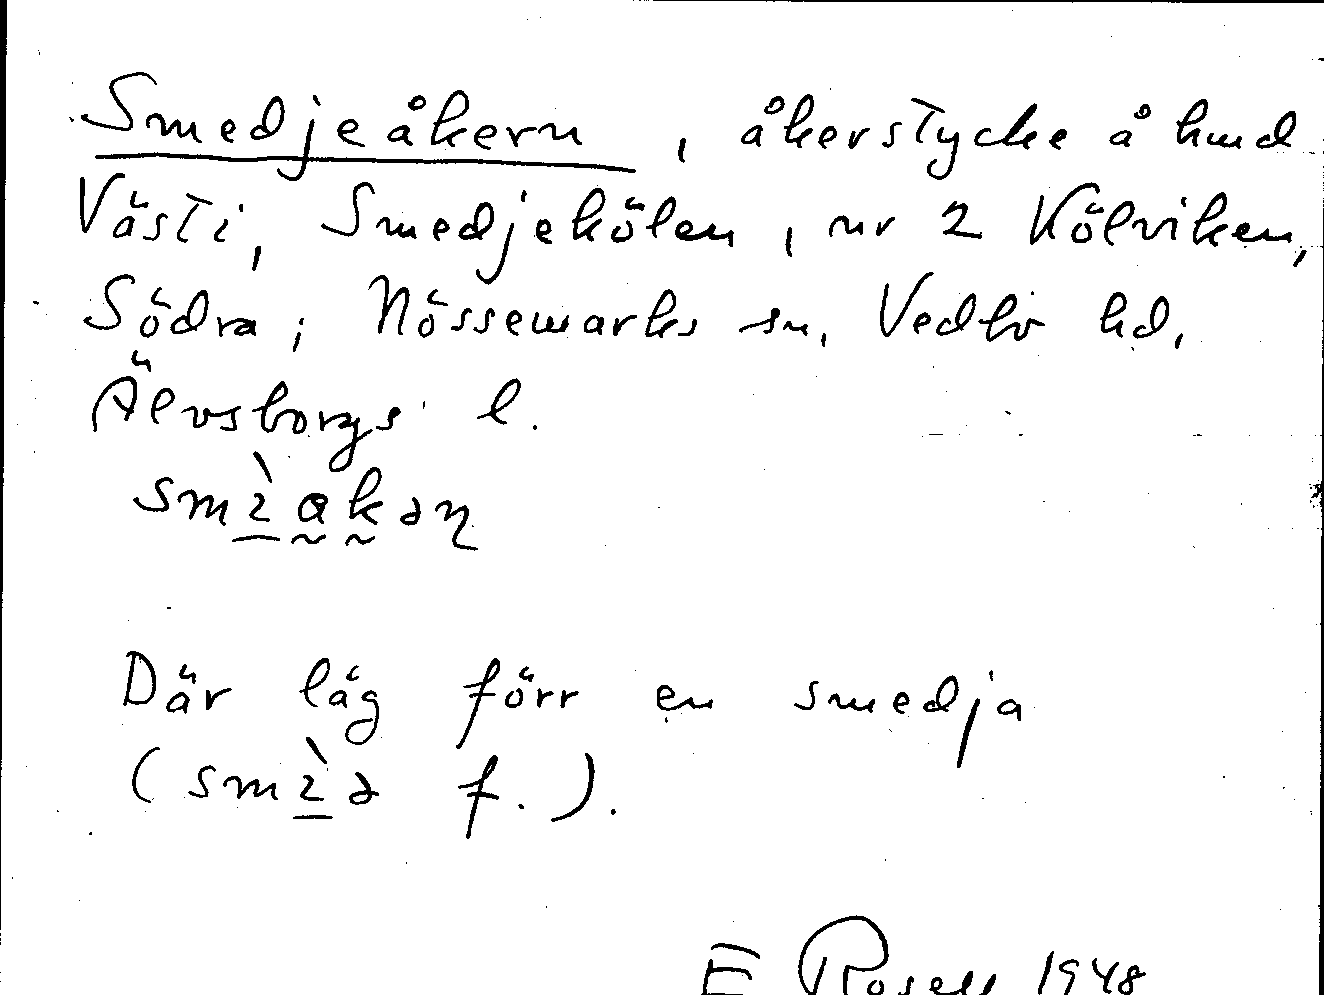 Smedjeåkern, åkerstycke å hmd
Västi, Smedjekölen, nr 2 Kölviken,
Södra; Nössemarks sn, Vedbo hd,
Älvsborgs l.
smɩ̀ạkəɳ
Där låg förr en smedja
(smɩ̀ə f.).
E Rosell 1948